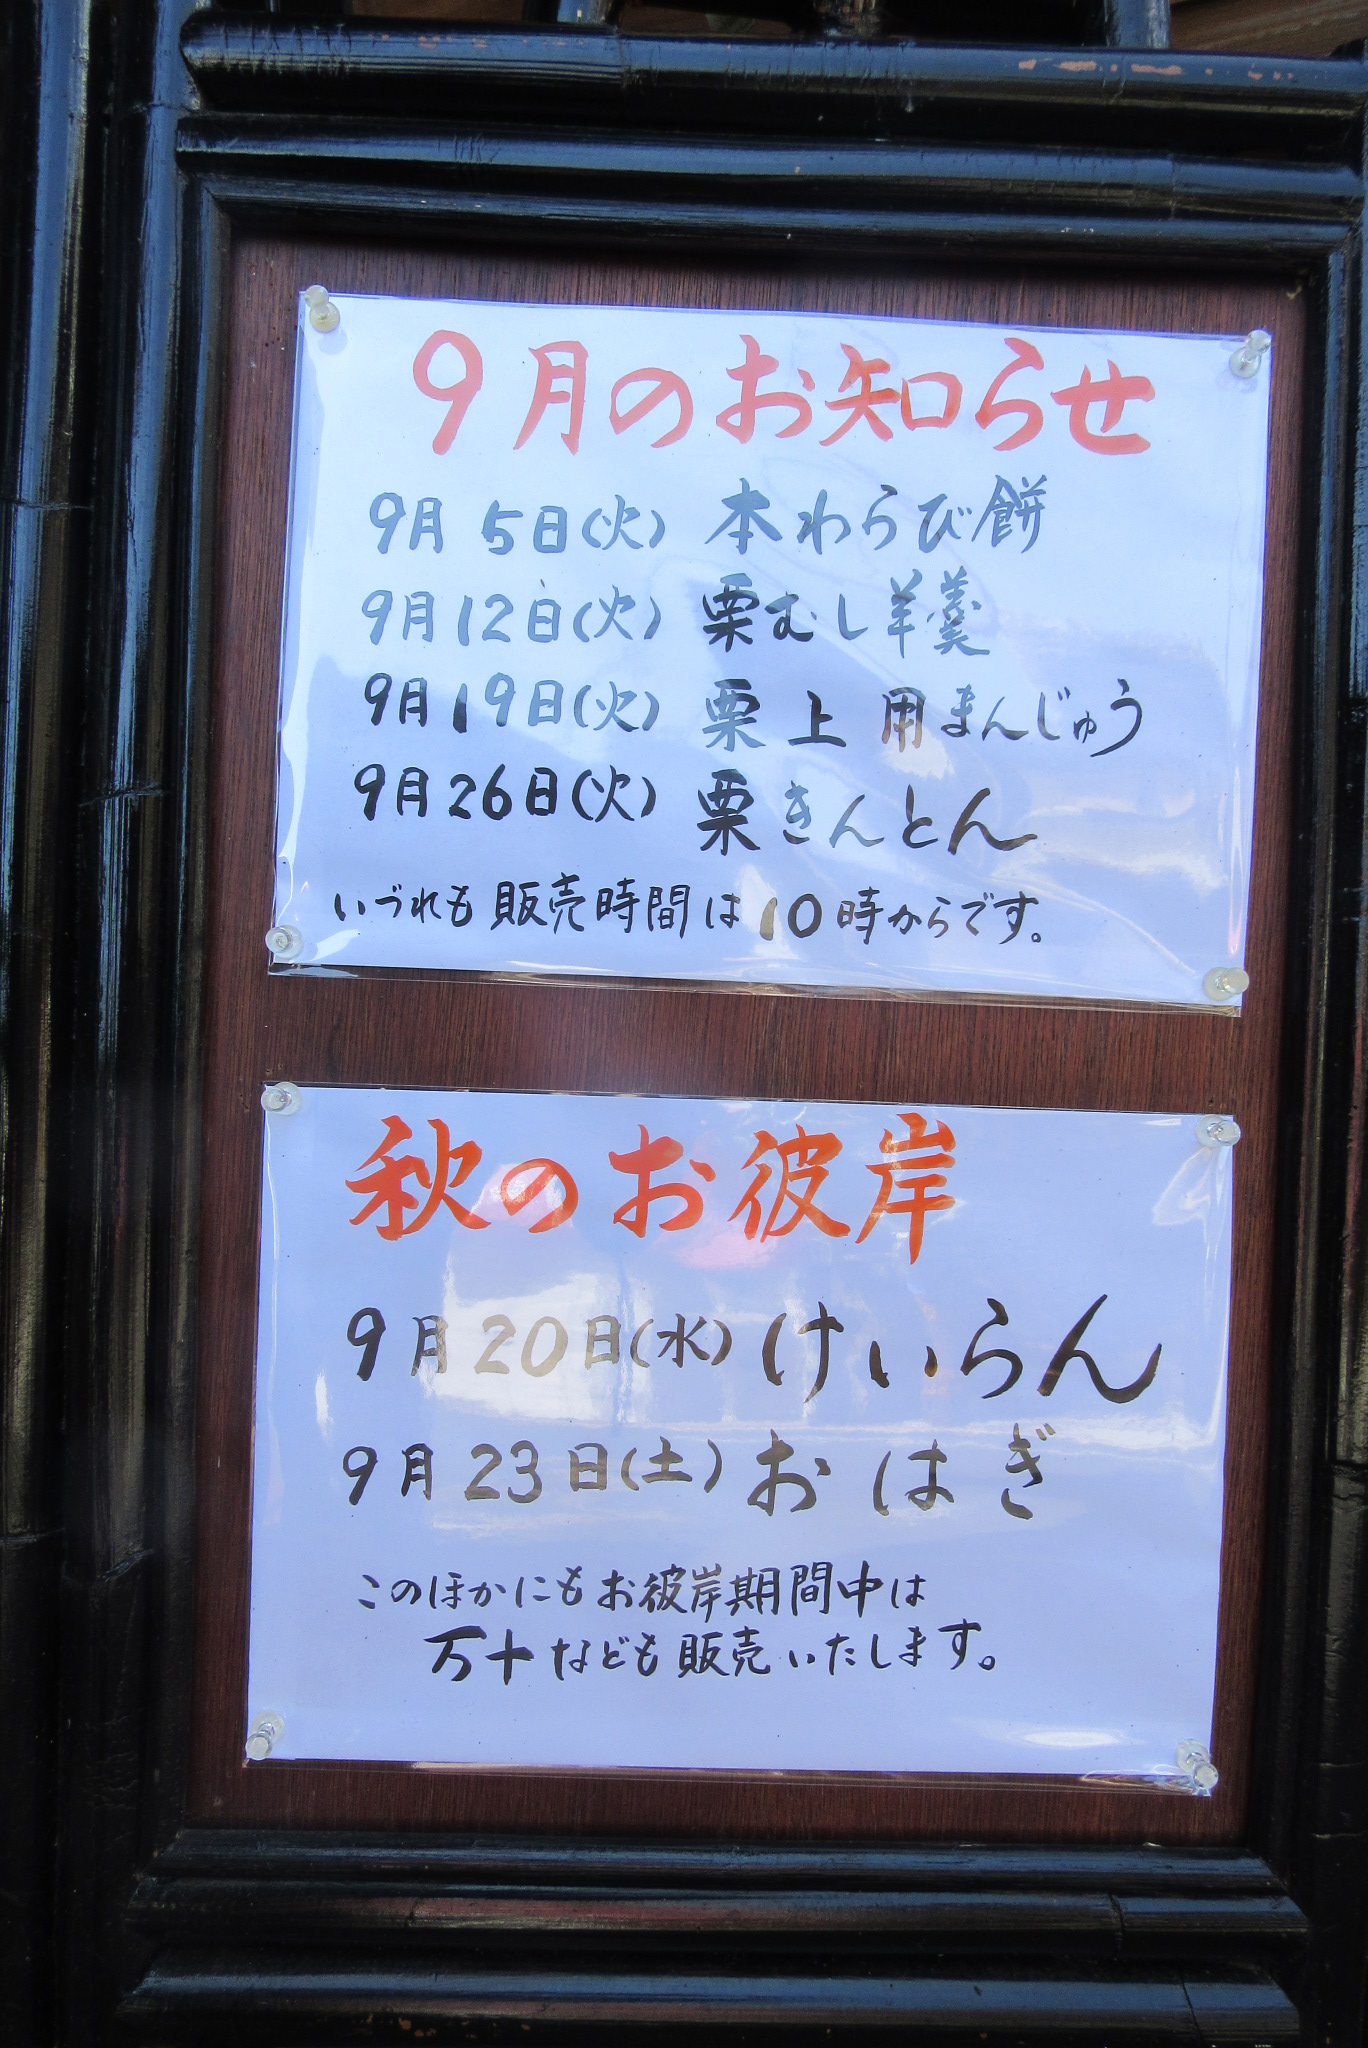 9月のお知らせ
9月5日(火) 本わらび餅
9月12日(火) 栗むし羊羹
9月19日(火) 栗上用まんじゅう
9月26日(火) 栗きんとん
いづれも販売時間は10時からです。
秋のお彼岸
9月20日(水) けいらん
9月23日(土) おはぎ
このほかにもお彼岸期間中は
万十なども販売いたします。